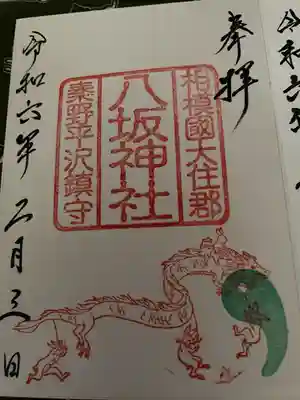 奉拝
相模國大住郡
八坂神社
秦野平沢鎮守
令和六年二月三日
令和六